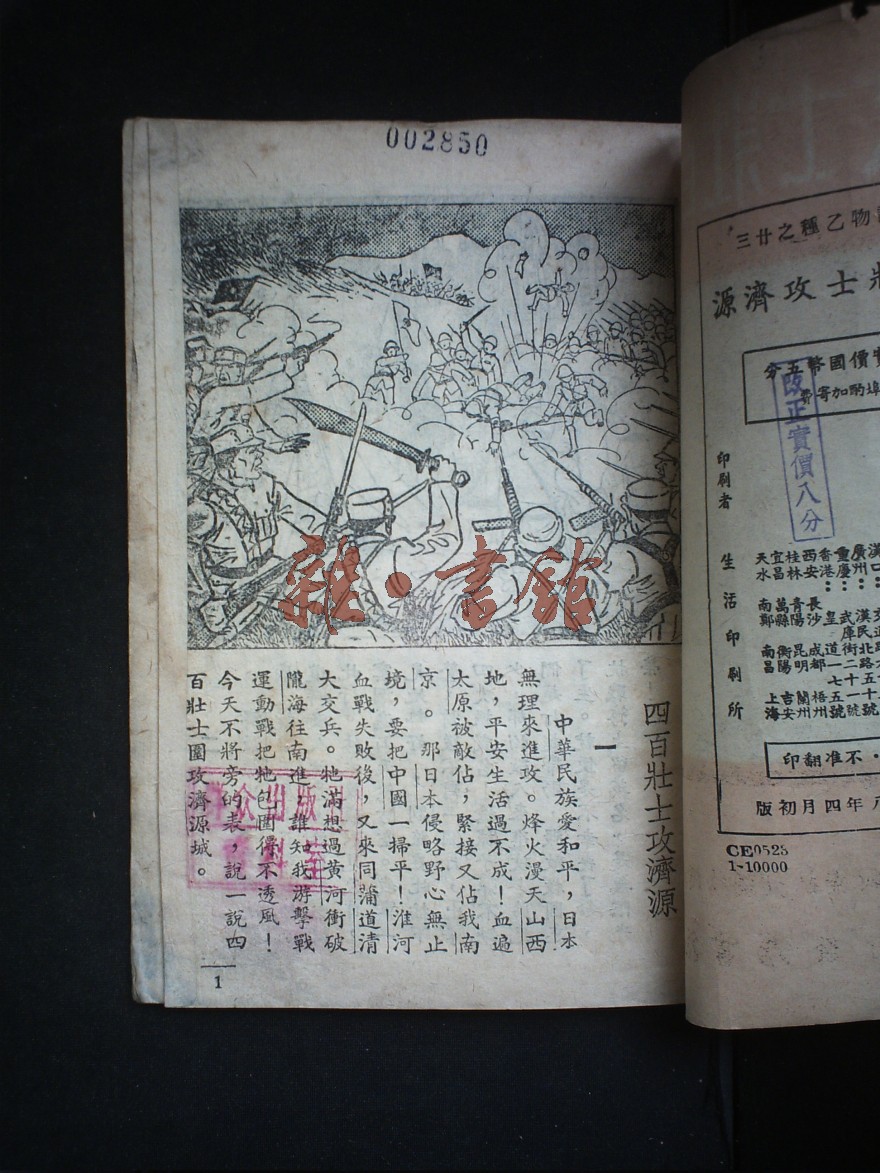 002850
四百壯士攻濟源
一
中華民族愛和平，日本
無理來進攻。烽火漫天山西
地，平安生活過不成！血遍
太原被敵佔，緊接又佔我南
京。那日本侵略野心無止
境，要把中國一掃平！淮河
血戰失敗後，又來同蒲道清
大交兵。牠滿想過黃河衝破
隴海往南進，誰知我游擊戰
運動戰把牠包圍得不透風！
今天不將旁的表，說一說四
百壯士圍攻濟源城。
1
雜·書館
物乙種之廿三
壯士攻濟源
實價國幣五分
埠酌加寄費
改正實價八分
印刷者 生活印刷所
漢口
廣州
重慶
香港
西安
桂林
宜昌
天水
長沙
萬縣
南鄭
成都
昆明
衡陽
南昌
梧州
蘭州
吉安
上海
不准翻印
年四月初版
CE0523
1-10000